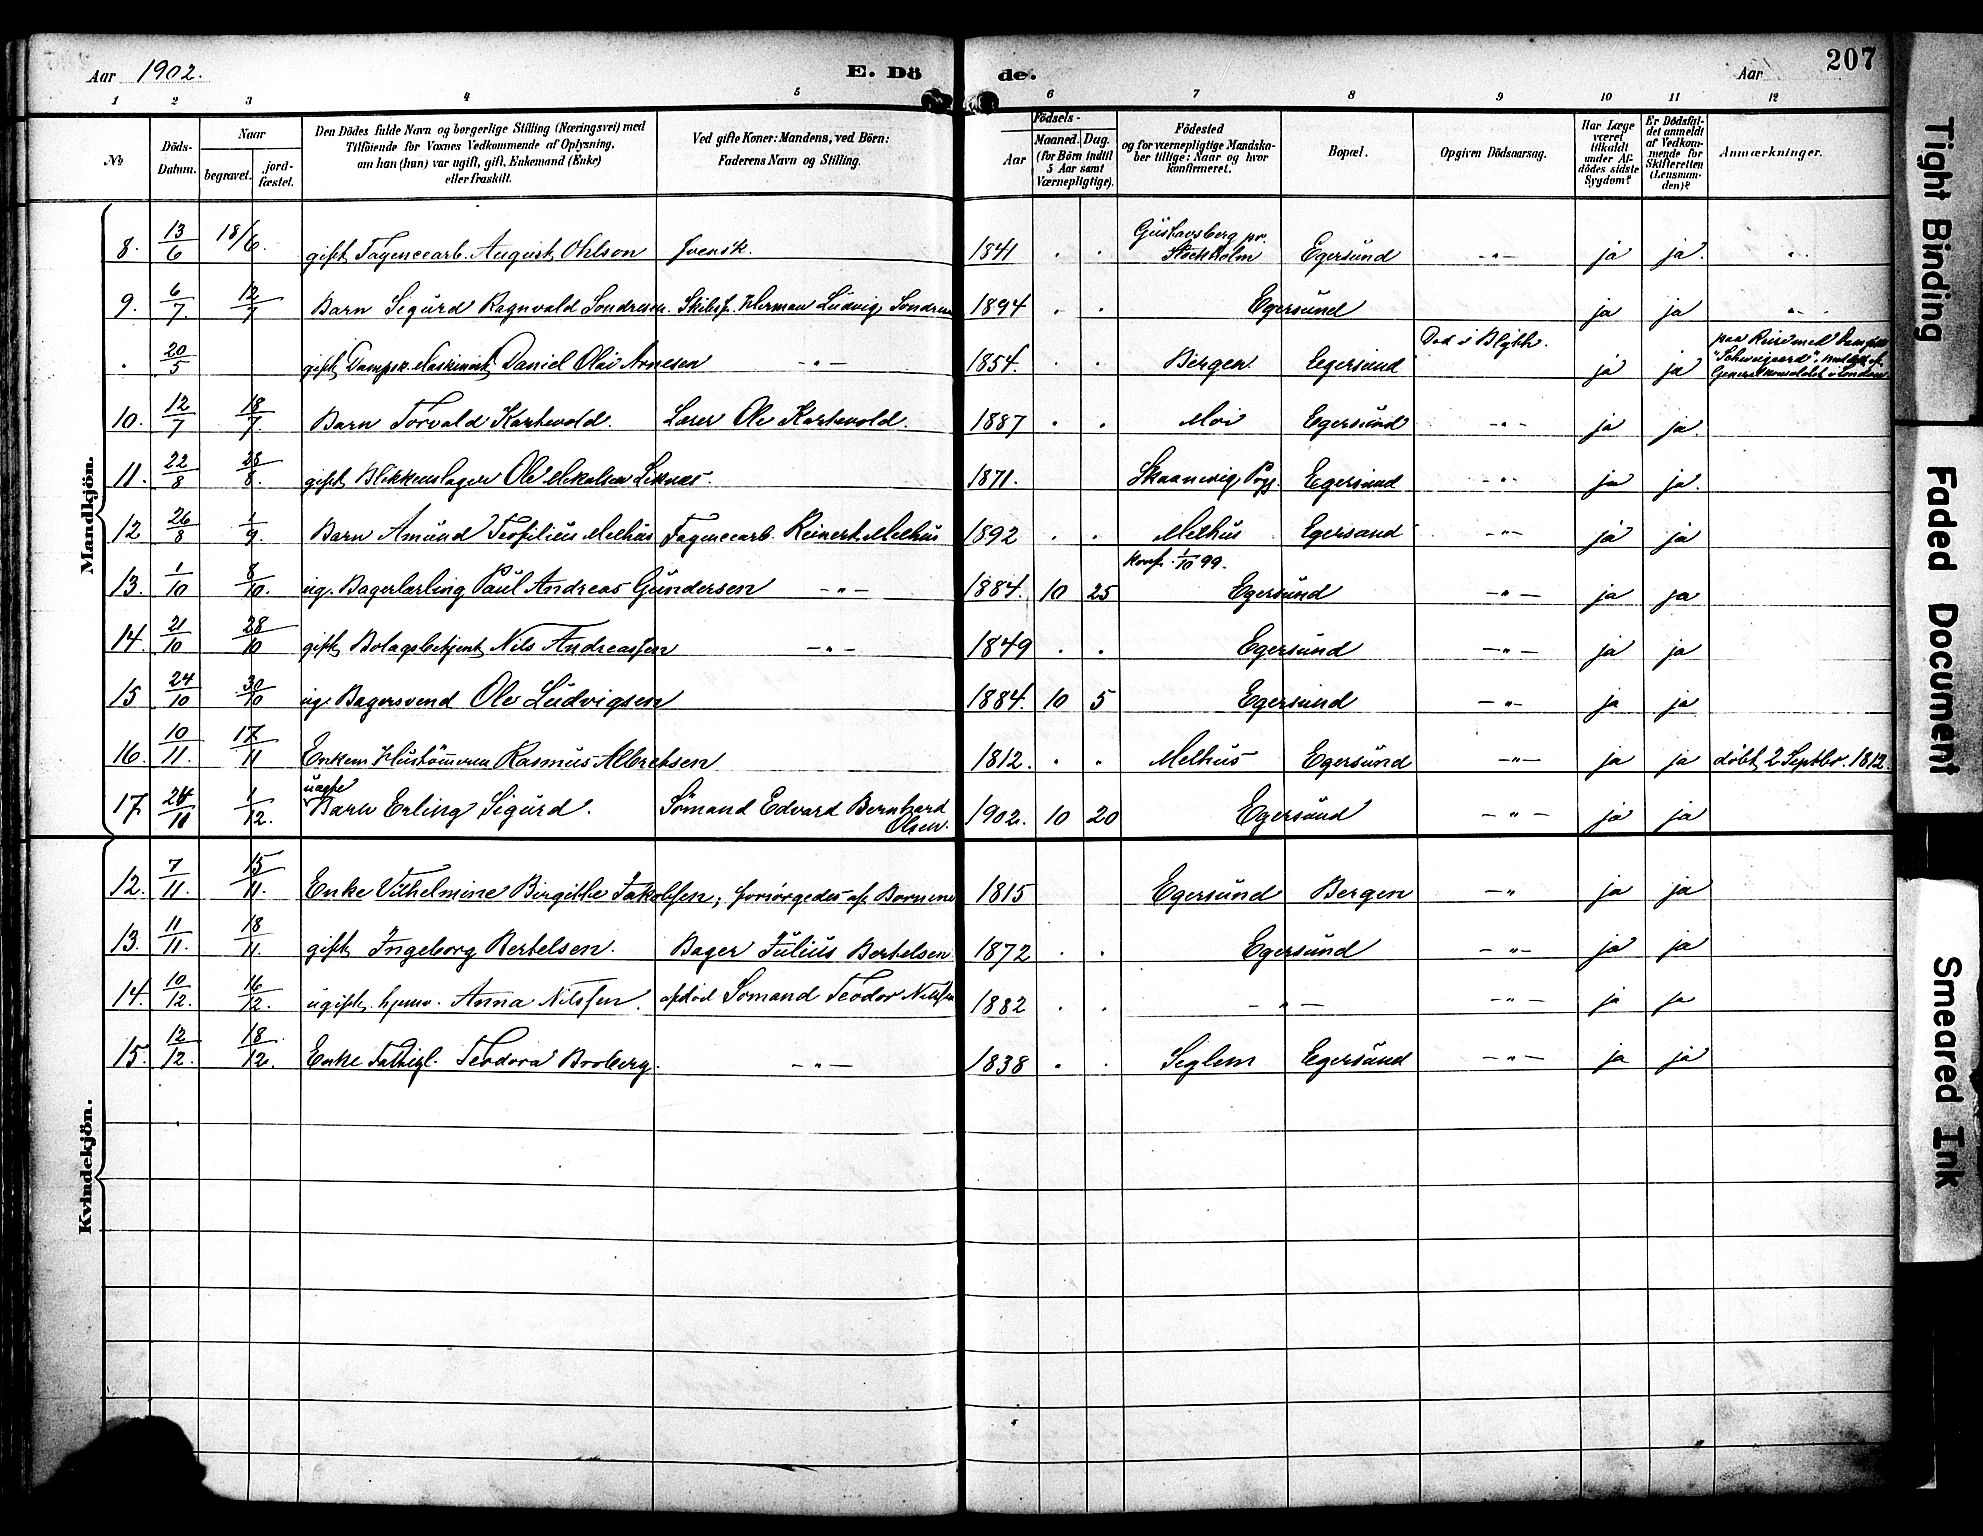 Aar 1902. E. Dö de. Aar 207
1 2 3 4 5 6 7 8 9 10 11 12
No Döds-Datum. Naar begravet. jord-fæstet. Den Dödes fulde Navn og borgerlige Stilling (Næringsvei) med Tilföiende for Voxnes Vedkommende af Oplysning, om han (hun) var ugift, gift, Enkemand (Enke) eller fraskilt. Ved gifte Koner: Mandens, ved Börn: Faderens Navn og Stilling. Födsels- Aar Maaned. Dag. (for Börn indtil 5 Aar samt Værnepligtige). Födested og for værnepligtige Mandskaber tillige: Naar og hvor konfirmeret. Bopæl. Opgiven Dödsaarsag. Har Læge været tilkaldt under Afdödes sidste Sygdom? Er Dödsfaldet anmeldt af Vedkommende for Skifteretten (Lensmanden)? Anmærkninger.
Mandkjön.
8. 13/6 18/6. gift Fayencearb. August Ohlson svensk. 1841 . . Gustavsberg pr. Stockholm Egersund -"- ja ja. "
9. 6/7 12/7 Barn Sigurd Ragnvald Sondresen. Skibsf. Herman Ludvig Sondresen 1894 . . Egersund ja ja "
. 20/5 gift Dampsk. Maskinist Daniel Olai Arnesen -"- 1854. . . Bergen Egersund Död i Blyth. ja ja paa Reise med "Schweigaard". Generalkonsulatet i London
10. 12/7 18/7 Barn Torvald Kartevold. Lærer Ole Kartevold. 1887 . . Moi Egersund -"- ja ja.
11. 22/8 28/8. gift Blikkenslager Ole Mikalsen Liknæs. 1871. Skaanevig Pgj. Egersund -"- ja ja.
12 26/8 1/9 Barn Amund Teofilius Melhus Fayencearb. Reinert Melhus 1892 . . Melhus Egersund -"- ja ja
13. 1/10 8/10. ug. Bagerlærling Paul Andreas Gundersen -"- 1884. 10 25 Konf. 1/10 99. Egersund -"- ja ja
14. 21/10 28/10 gift Bolagsbetjent Nils Andreassen -"- 1849 . . Egersund -"- ja ja
15 24/10 30/10 ug. Bagersvend Ole Ludvigsen 1884. 10 5 Egersund -"- ja ja
16. 10/11. 17/11 Enkem. Hustömmerm Rasmus Albretsen 1812. " " Melhus Egersund -"- ja ja döbt 2 Septbr. 1812.
17. 24/11 1/12. uægte Barn Erling Sigurd. Sömand Edvard Bernhard Olsen. 1902. 10 20 Egersund -"- ja ja
Kvindekjön.
12. 7/11. 15/11. Enke Vilhelmine Birgitte Jakobsen, forsörgedes af Börnene 1815 Egersund Bergen -" ja ja
13. 11/11. 18/11. gift Ingeborg Bertelsen. Bager Julius Bertelsen. 1872 . . Egersund -"- ja ja
14. 10/12. 16/12. ugift hjemv. Anna Nilssen. afdöd Sömand Teodor Nilssen 1882 . . -"- -"- ja ja
15. 12/12. 18/12. Enke Fattigl. Teodora Broberg. -"- 1838 . . Seglem Egersund -"- ja ja
Tight Binding
Faded Document
Smeared Ink